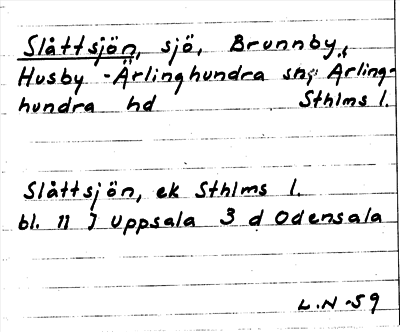 Slåttsjön, sjö, Brunnby,
Husby-Ärlinghundra sn, Ärling-
hundra hd Sthlms l.
Slåttsjön, ek Sthlms l.
bl. 11 J Uppsala 3 d Odensala
L.N -59